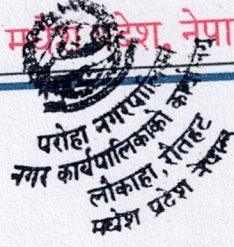 मधेश प्रदेश, नेपा
परोहा नगरपालिका
नगर कार्यपालिकाको कार्यालय
लौकाहा, रौतहट
मधेश प्रदेश नेपाल